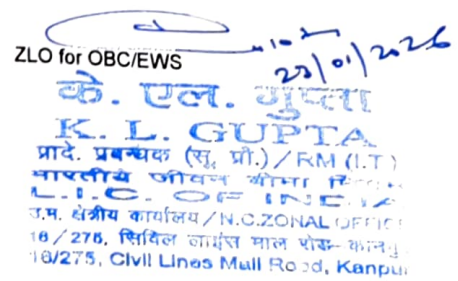 23/01/2026
ZLO for OBC/EWS
के. एल. गुप्ता
K. L. GUPTA
प्रादे. प्रबन्धक (सू. प्रौ.) / RM (I.T)
भारतीय जीवन बीमा
L.I.C. OF INDIA
उ.म. क्षेत्रीय कार्यालय / N.C.ZONAL OFFIC
16/275, सिविल लाइंस माल रोड- कानपु
16/275, Civil Lines Mall Road, Kanpu